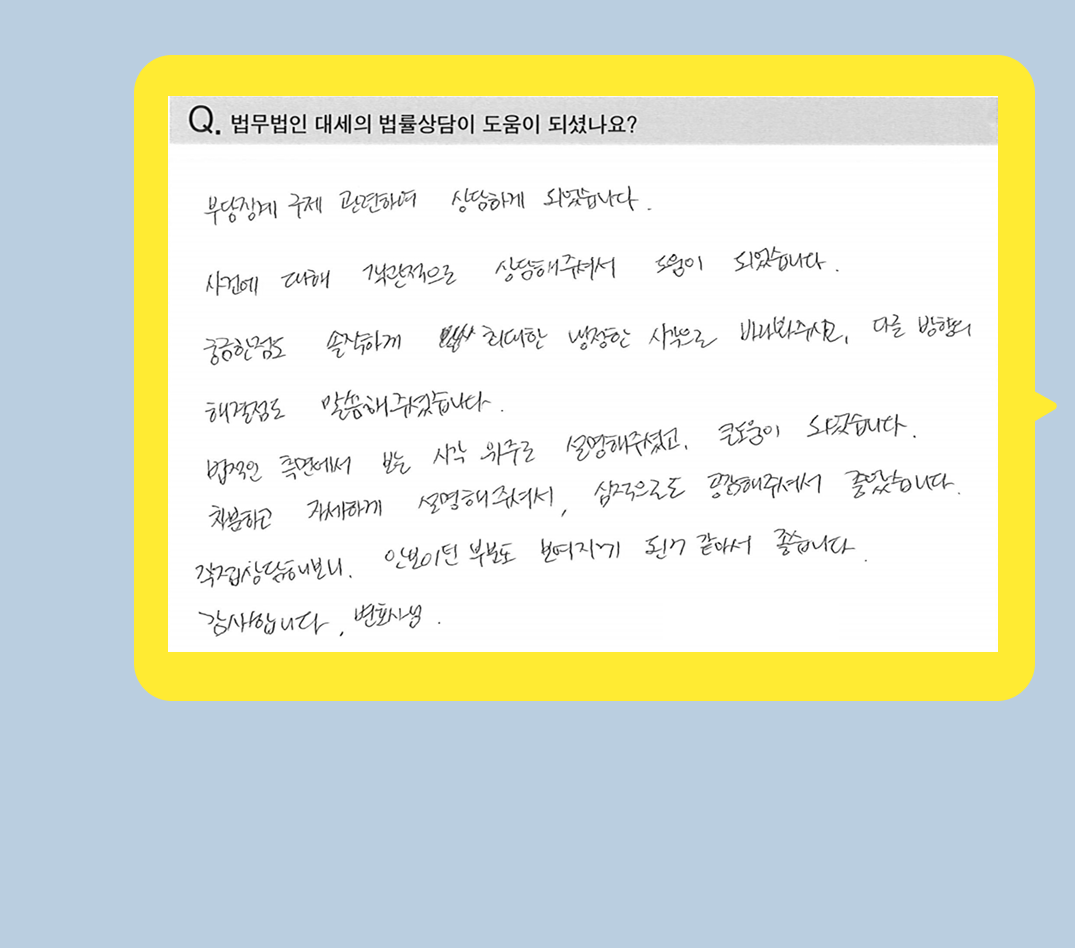 Q. 법무법인 대세의 법률상담이 도움이 되셨나요?
부당징계 구제 관련하여 상담하게 되었습니다.
사건에 대해 객관적으로 상담해주셔서 도움이 되었습니다.
궁금한점도 솔직하게 최대한 냉정한 시각으로 바라봐주시고, 다른 방향의
해결점도 말씀해주셨습니다.
법적인 측면에서 보는 시각 위주로 설명해주셨고, 큰도움이 되었습니다.
차분하고 자세하게 설명해주셔서, 심적으로도 공감해주셔서 좋았습니다.
직접상담해보니, 안보이던 부분도 보여지기 된거 같아서 좋습니다.
감사합니다, 변호사님.